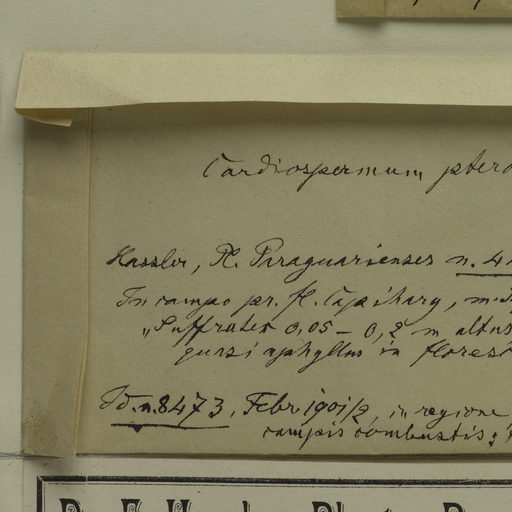 Cardiospermum ptero
Hassler, Pl. Paraguarienses n. 4
In campo pr. fl. Capibary, m.
„Suffrutex 0,05 – 0,2 m altus
quasi aphyllus in flores
Id. n. 8473, Febr. 1901/2, in regione
campis combustis;